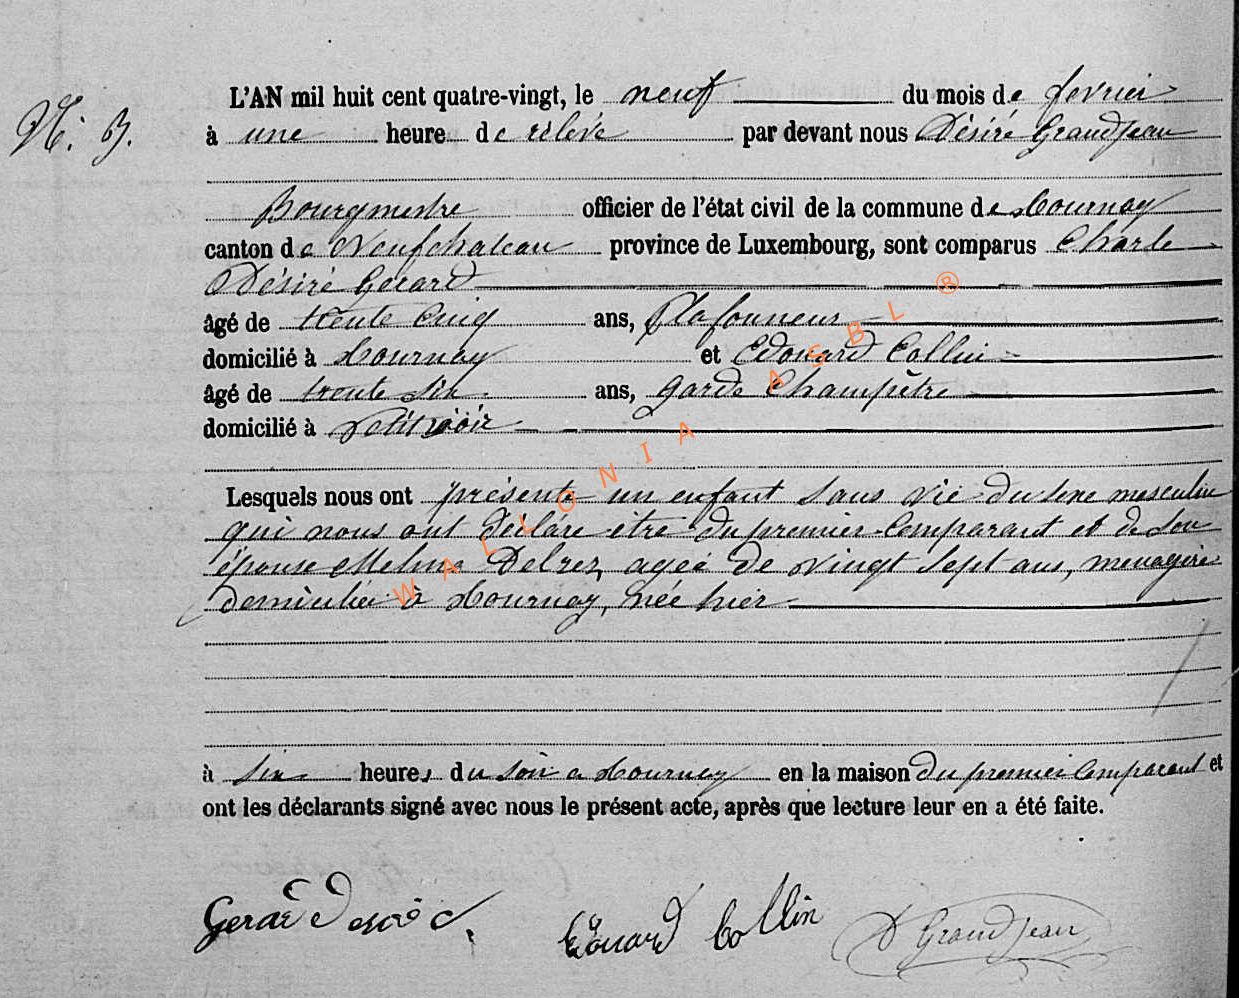 N: 3.
L'AN mil huit cent quatre-vingt, le neuf du mois de fevrier
à une heure de rélevé par devant nous Désiré GrandJean
Bourgmestre officier de l'état civil de la commune de Tournay
canton de Neufchateau province de Luxembourg, sont comparus Charle
Désiré Gerard
âgé de trente cinq ans, Plafonneur
domicilié à Tournay et Edouard Collin
âgé de trente six ans, garde Champêtre
domicilié à Petitvoir
Lesquels nous ont présenté un enfant sans vie du sexe masculin
qui nous ont déclare être du premier Comparant et de son
épouse Delrez, agée de vingt sept ans, menagère
demiciliée à Tournay, née hier
à six heures du soir a Tournay en la maison du premier Comparant et
ont les déclarants signé avec nous le présent acte, après que lecture leur en a été faite.
Gerard
Edouard Collin
D GrandJean
WALLONIA ASBL ®